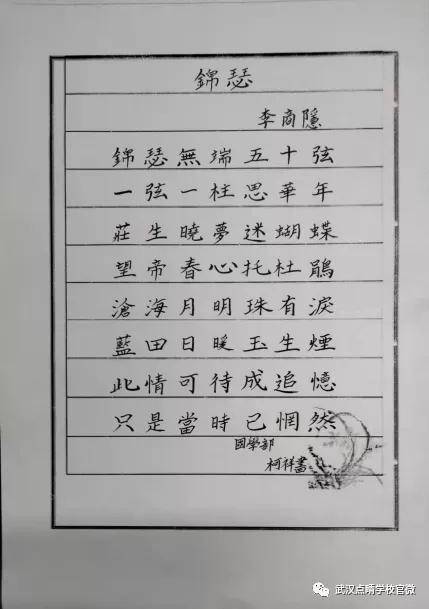 錦瑟
李商隱
錦瑟無端五十弦
一弦一柱思華年
莊生曉夢迷蝴蝶
望帝春心托杜鵑
滄海月明珠有淚
藍田日暖玉生煙
此情可待成追憶
只是當時已惘然
國學部
柯祥書
武汉点睛学校官微